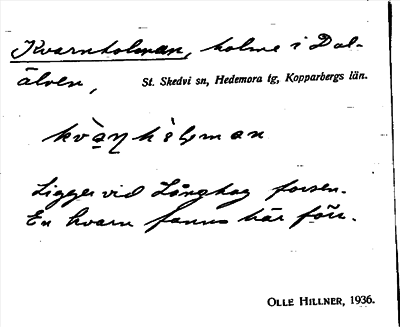 Kvarnholman, holme i Dal-
älven, St. Skedvi sn, Hedemora tg, Kopparbergs län.
Ligger vid Långhag forsen.
En kvarn fanns här förr.
OLLE HILLNER, 1936.